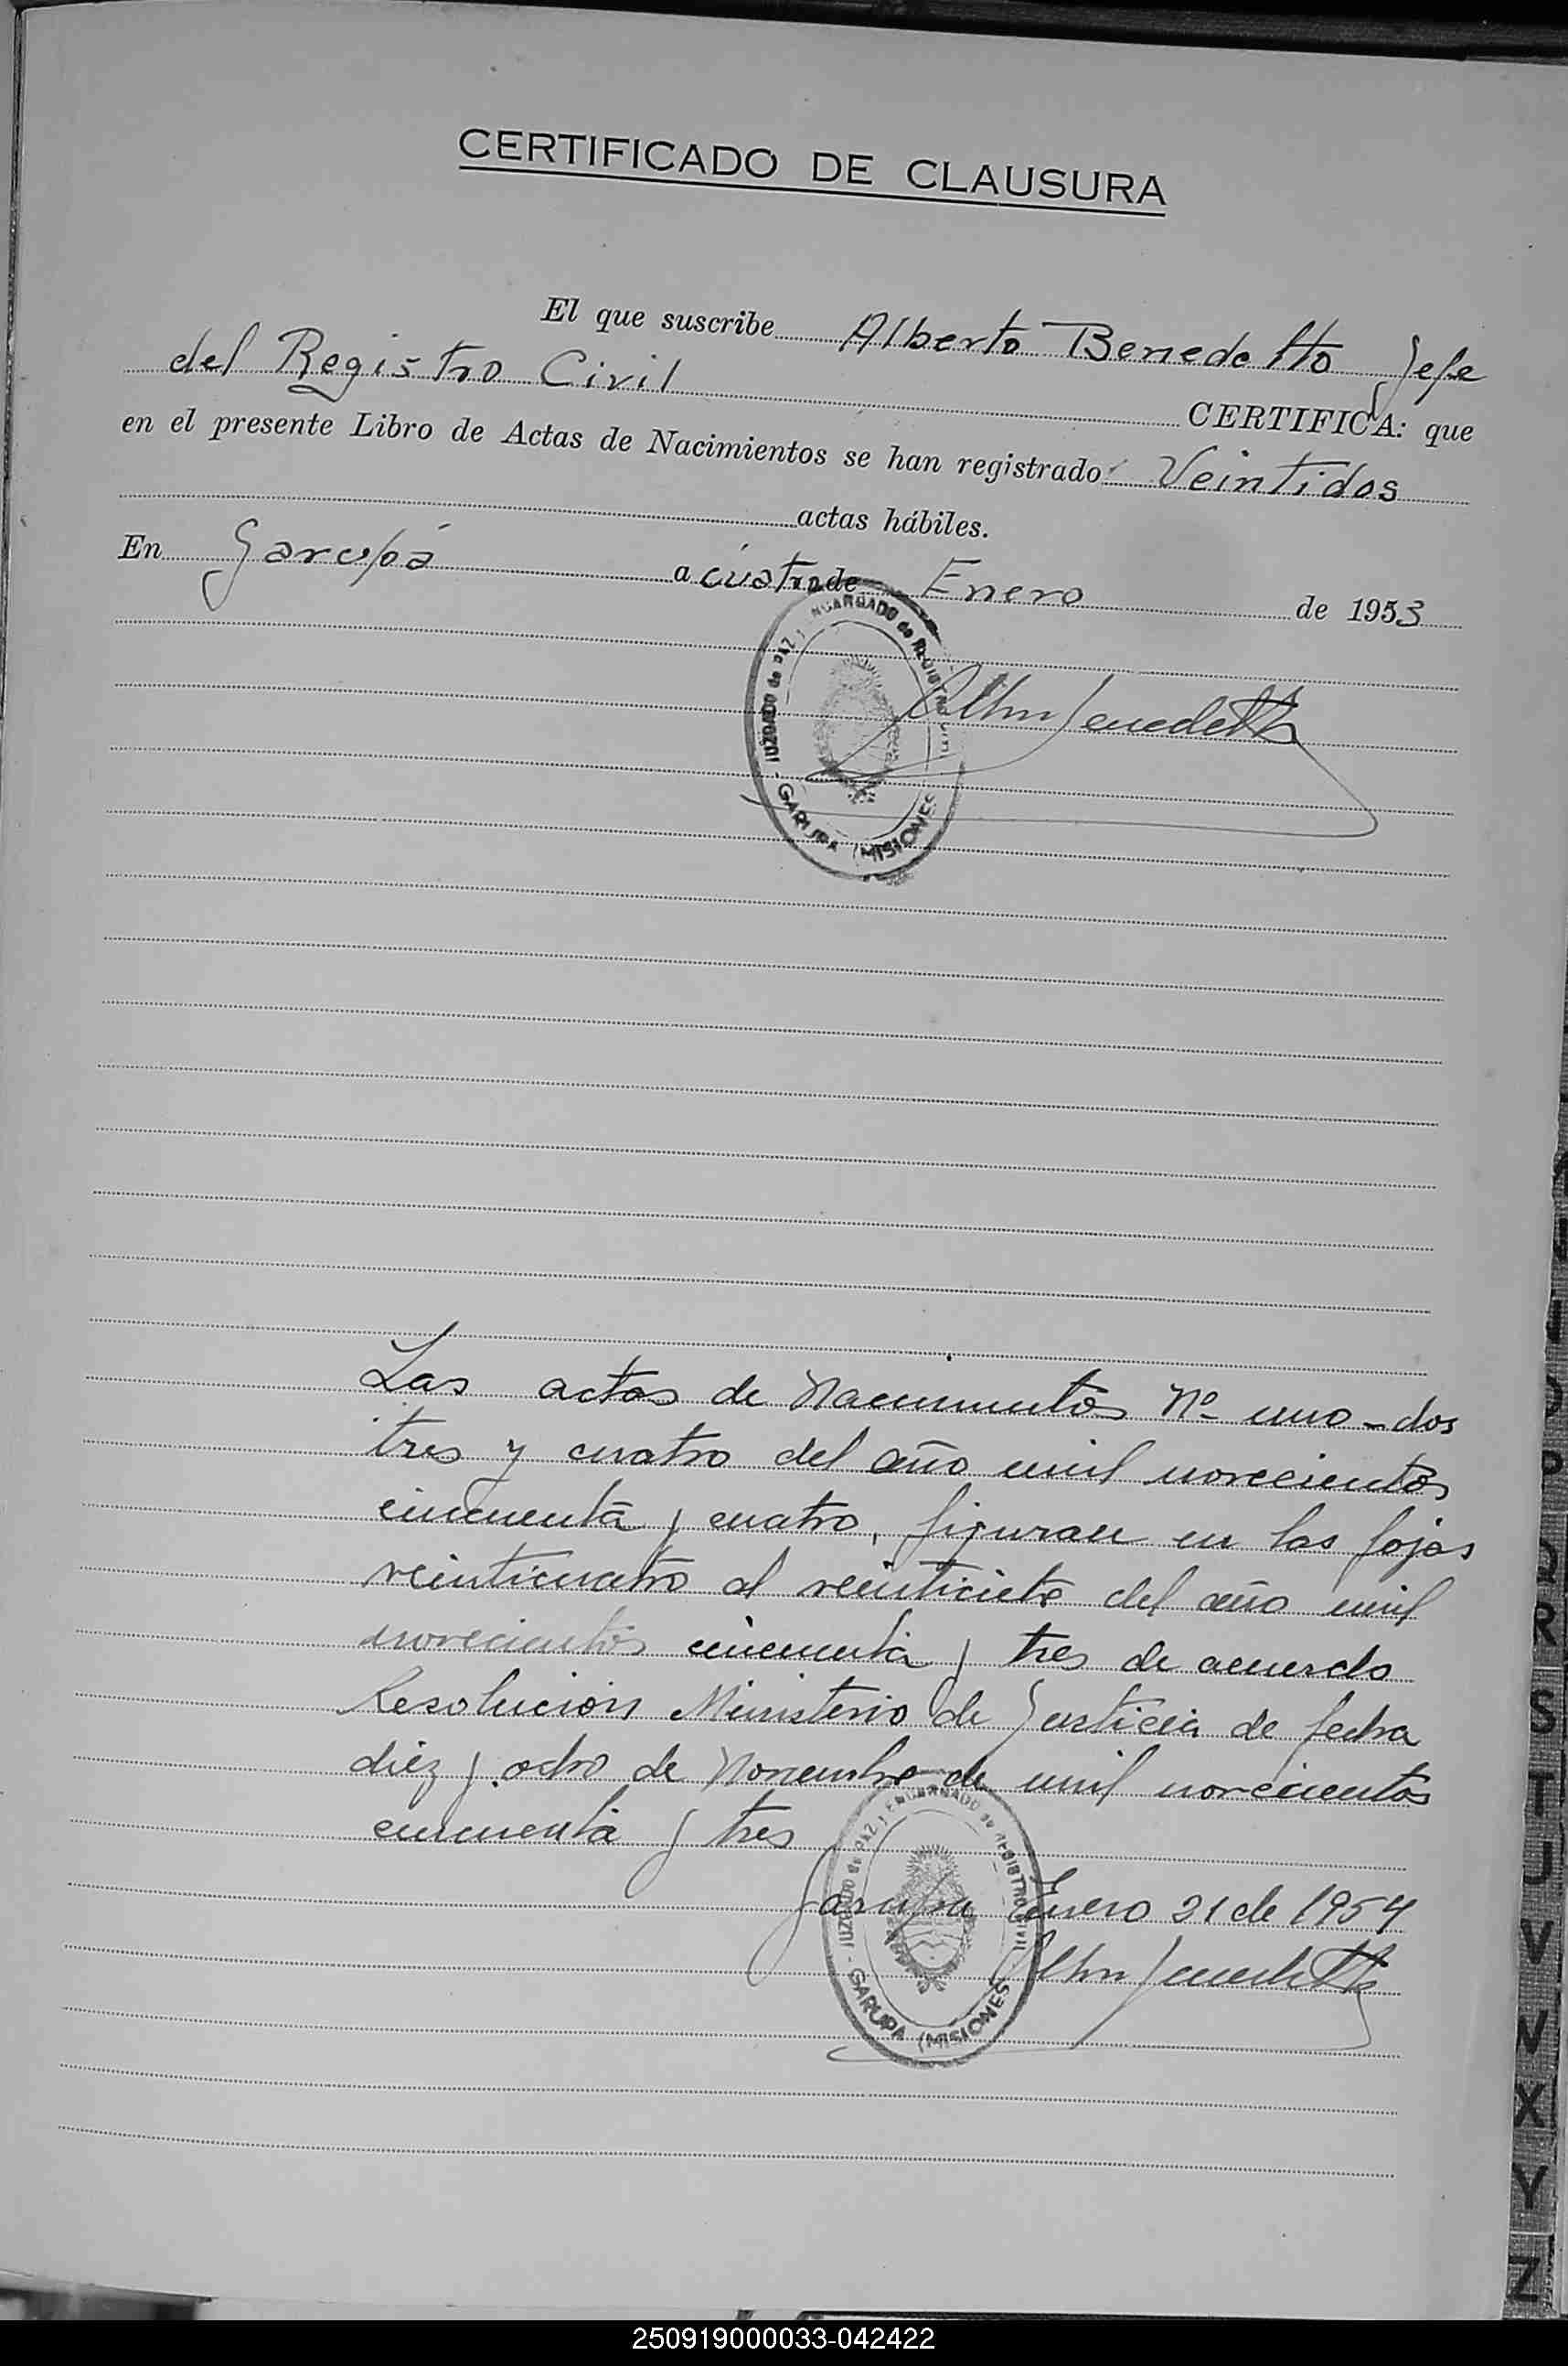 CERTIFICADO DE CLAUSURA
El que suscribe Alberto Benedetto Jefe
del Registro Civil CERTIFICA: que
en el presente Libro de Actas de Nacimientos se han registrado: Veintidos
actas hábiles.
En Garupá a cuatro de Enero de 1953
JUZGADO de PAZ y ENCARGADO de REGISTRO CIVIL
- GARUPA (MISIONES
Alberto Benedetto
Las actas de Nacimientos Nº uno - dos
tres y cuatro del año mil novecientos
cincuenta y cuatro, figuran en las fojas
veinticuatro al veinticiete del año mil
novecientos cincuenta y tres de acuerdo
Resolución Ministerio de Justicia de fecha
diez y ocho de Noviembre de mil novecientos
cincuenta y tres
Garupa Enero 21 de 1954
JUZGADO de PAZ y ENCARGADO de REGISTRO CIVIL
- GARUPA (MISIONES
Alberto Benedetto
P
Q
R
S
T
U
V
W
X
Y
Z
250919000033-042422